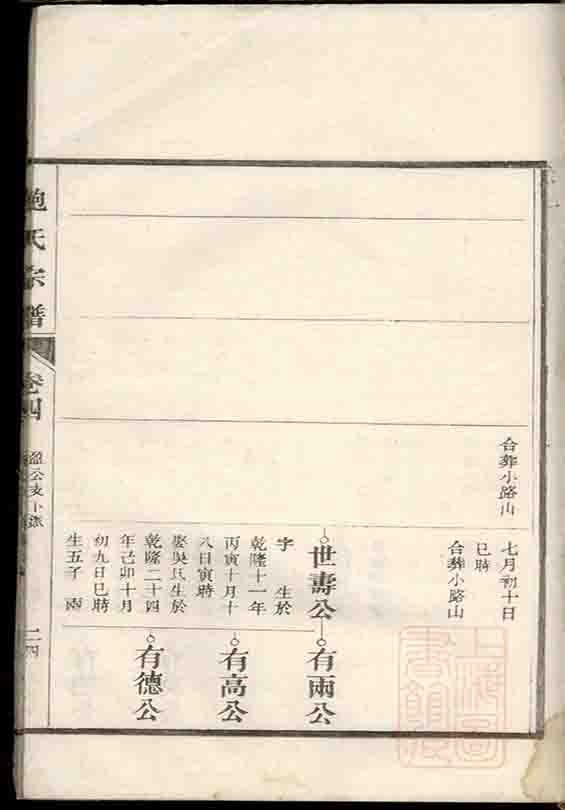 合葬小路山
七月初十日
巳時
合葬小路山
世壽公
有兩公
字 生於
乾隆十一年
丙寅十月十
八日寅時
娶吳氏生於
乾隆二十四
年己卯十月
初九日巳時
生五子 兩
有高公
有德公
鮑氏宗譜
卷四
盈公支下派
二四
上海圖書館藏